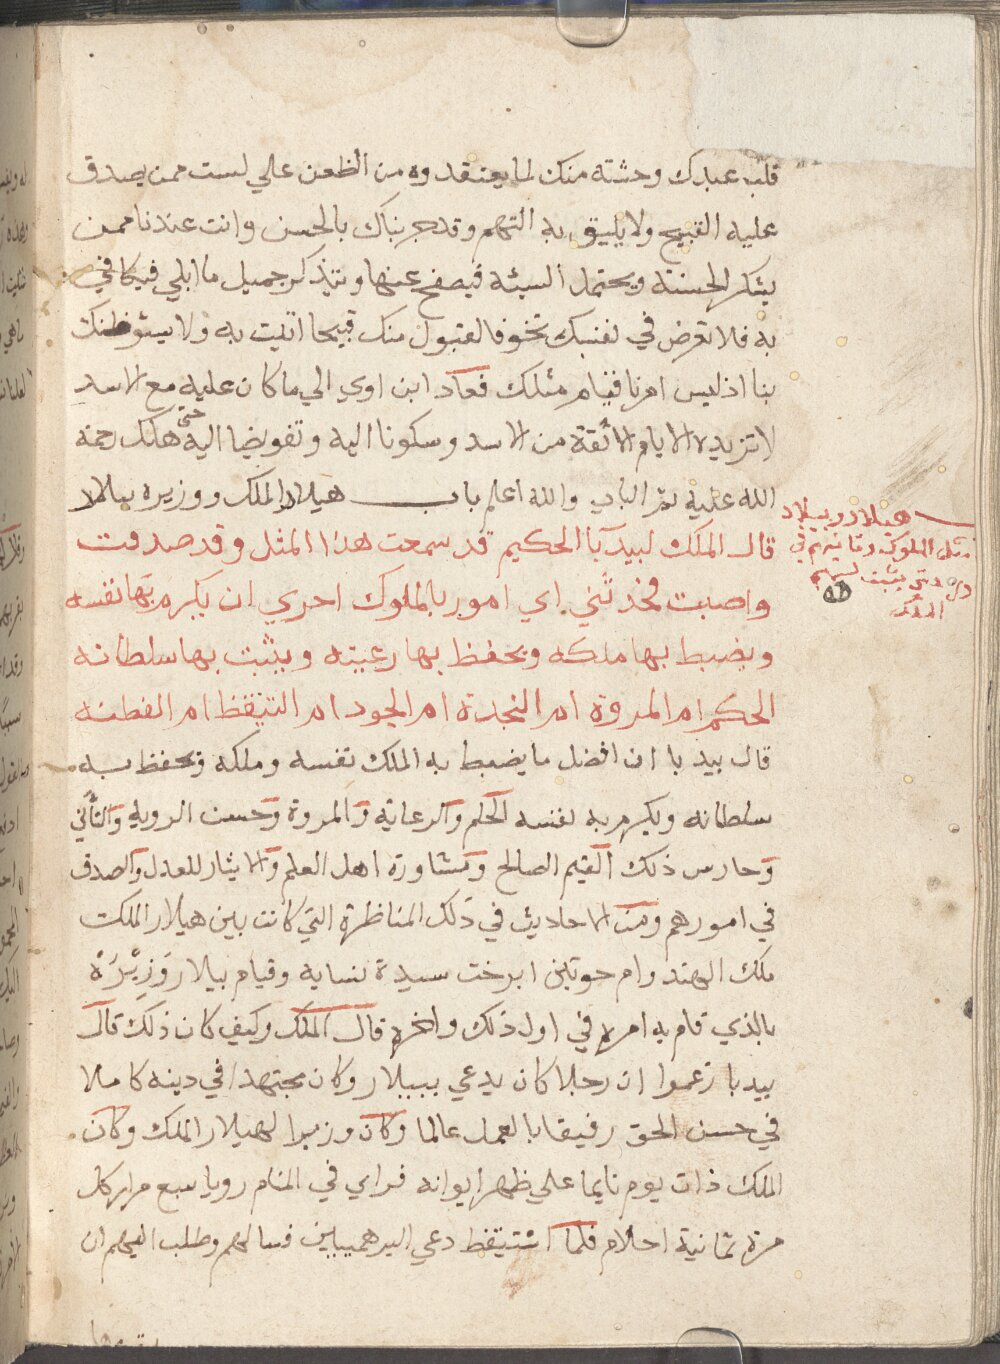 قلب عبدك وحشته منك لما يعتقدوه من الظعن علي لست ممن يصدق
عليه القبيح ولا يليق به التهم وقد جربناك بالحسن وانت عندنا ممن
يشكر الحسنة ويحتمل السيئه فيصفح عنها ويتذكر جميل ما ابلي فيكافي
به فلا تعرض في نفسك تخوفا لقبول منك قبيحا اتيت به ولا سيئوظنك
بنا اذ ليس امرنا قيام مثلك فعاد ابن اوي الي ما كان عليه مع الاسد
لا تزيده الايام الا ثقة من الاسد وسكونا اليه وتفويضا اليه حتي هلك رحمة
الله عليه تم الباب والله اعلم باب هيلاد الملك ووزيره بيلاد
قال الملك لبيدبا الحكيم قد سمعت هذا المثل وقد صدقت
واصبت فحدثني اي امور بالملوك احري ان يكرم بها نفسه
ويضبط بها ملكه ويحفظ بها رعيته ويثبت بها سلطانه
الحكم ام المروة ام النجدة ام الجود ام التيقظ ام الفطنه
قال بيدبا ان افضل ما يضبط به الملك نفسه وملكه ويحفظ به
سلطانه ويكرم به نفسه الحلم والرعاية والمروة وحسن الرويه والتأني
وحارس ذلك القيم الصالح ومشاورة اهل العلم والايثار للعدل والصدق
في امورهم ومن الاحاديث في ذلك المناظرة التي كانت بين هيلار الملكت
ملك الهند وام حوتين ابرخت سيدة نسايه وقيام بيلار وزيره
بالذي قام به امره في اول ذلك واخره قال الملك وكيف كان ذلك قال
بيدبا زعموا ان رجلا كان يدعي ببيلار وكان مجتهدا في دينه كاملا
في حسن الحق رفيقا بالعمل عالما وكان وزيرا لهيلار الملك وكان
الملك ذات يوم نايما علي ظهر ايوانه فراي في المنام رويا سبع مرار كل
مرة ثمانية احلام فلما استيقظ دعي البرهميين فسالهم وطلب اليهم ان
هيلاد وبيلاد
مثل الملوك
الملك